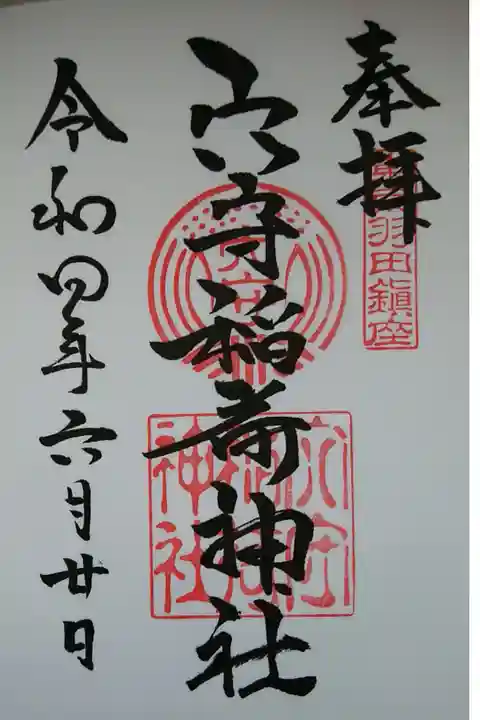 奉拝
羽田鎮座
穴守稲荷神社
穴守稲荷神社
令和四年六月廿日